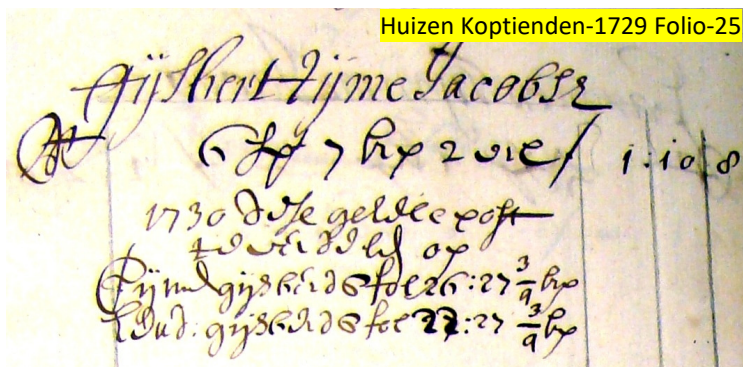 Huizen Koptienden-1729 Folio-25
Gijsbert Tijme Jacobsz
6 sp 7 brp 2 vie 1:10 8
1730 dese geldee post
op
Tijme gijsberds fol 26:27 3/4 brp
Lou: gijsberds fol 22:27 3/4 brp